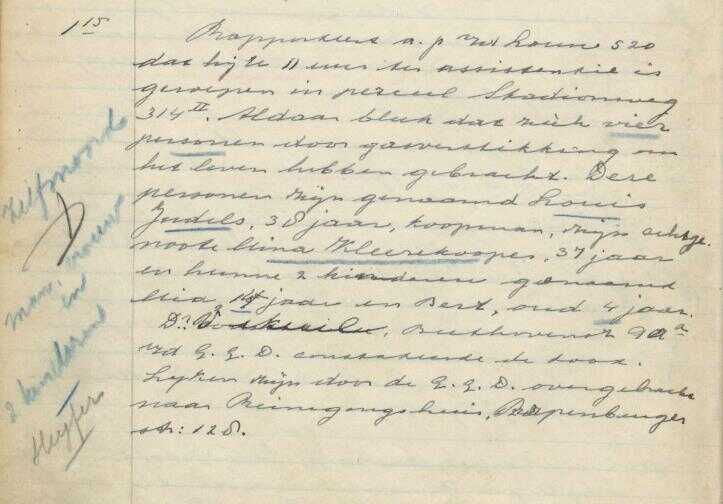 1 15
Rapporteert a.p. v/d Louw 520
dat hij te 11 uur ter assistentie is
geroepen in perceel Stadionweg
314 II. Aldaar bleek dat zich vier
personen door gasverstikking om
het leven hebben gebracht. Deze
personen zijn genaamd Louis
Judels, 38 jaar, koopman, zijn echtge-
noote Mina Kleerekooper, 37 jaar
en hunne 2 kinderen genaamd
Mia, jaar en Bert, oud 4 jaar.
Dr. Beethovenstr 90a
v/d G.G.D. constateerde de dood.
Lijken zijn door de G.G.D. overgebracht
naar Reinigingshuis, Rapenburger
str: 128.
Zelfmoord
man, vrouw
en
2 kinderen